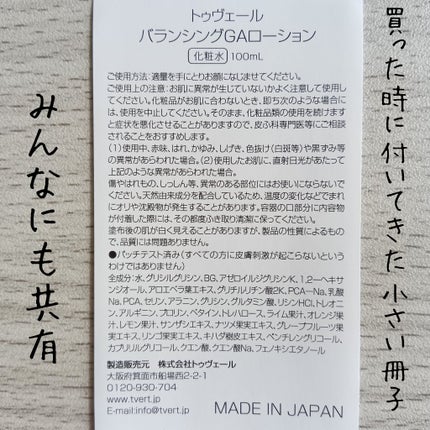 買った時に付いてきた小さい冊子
みんなにも共有
トゥヴェール
バランシングGAローション
化粧水 100mL
ご使用方法:適量を手にとりお顔になじませてください。
ご使用上の注意:お肌に異常が生じていないかよく注意して使用し
てください。化粧品がお肌に合わないとき、即ち次のような場合に
は、使用を中止してください。そのまま、化粧品類の使用を続けます
と症状を悪化させることがありますので、皮ふ科専門医等にご相談
されることをおすすめします。
(1)使用中、赤味、はれ、かゆみ、しげき、色抜け(白斑等)や黒ずみ等
の異常があらわれた場合。(2)使用したお肌に、直射日光があたって
上記のような異常があらわれた場合。
傷やはれもの、しっしん等、異常のある部位にはお使いにならないで
ください。天然由来成分を配合しているため、温度の変化などでまれ
にオリや沈殿物が発生することがあります。容器の口部分に内容物
が付着した際には、その都度ふき取り清潔に保ってください。
塗布後の肌が白く見えることがありますが、製品の性質によるもの
で、品質には問題ありません。
●パッチテスト済み(すべての方に皮膚刺激が起こらないという
わけではありません)
全成分:水、グリシルグリシン、BG、アゼロイルジグリシンK、1,2-ヘキサ
ンジオール、アロエベラ葉エキス、グリチルリチン酸2K、PCA-Na、乳酸
Na、PCA、セリン、アラニン、グリシン、グルタミン酸、リシンHCl、トレオニ
ン、アルギニン、プロリン、ベタイン、トレハロース、ライム果汁、オレンジ果
汁、レモン果汁、サンザシエキス、ナツメ果実エキス、グレープフルーツ果
実エキス、リンゴ果実エキス、キハダ樹皮エキス、ペンチレングリコール、
カプリリルグリコール、クエン酸、クエン酸Na、フェノキシエタノール
製造販売元 株式会社トゥヴェール
大阪府箕面市船場西2-2-1
0120-930-704
www.tvert.jp
E-mail:info@tvert.jp
MADE IN JAPAN